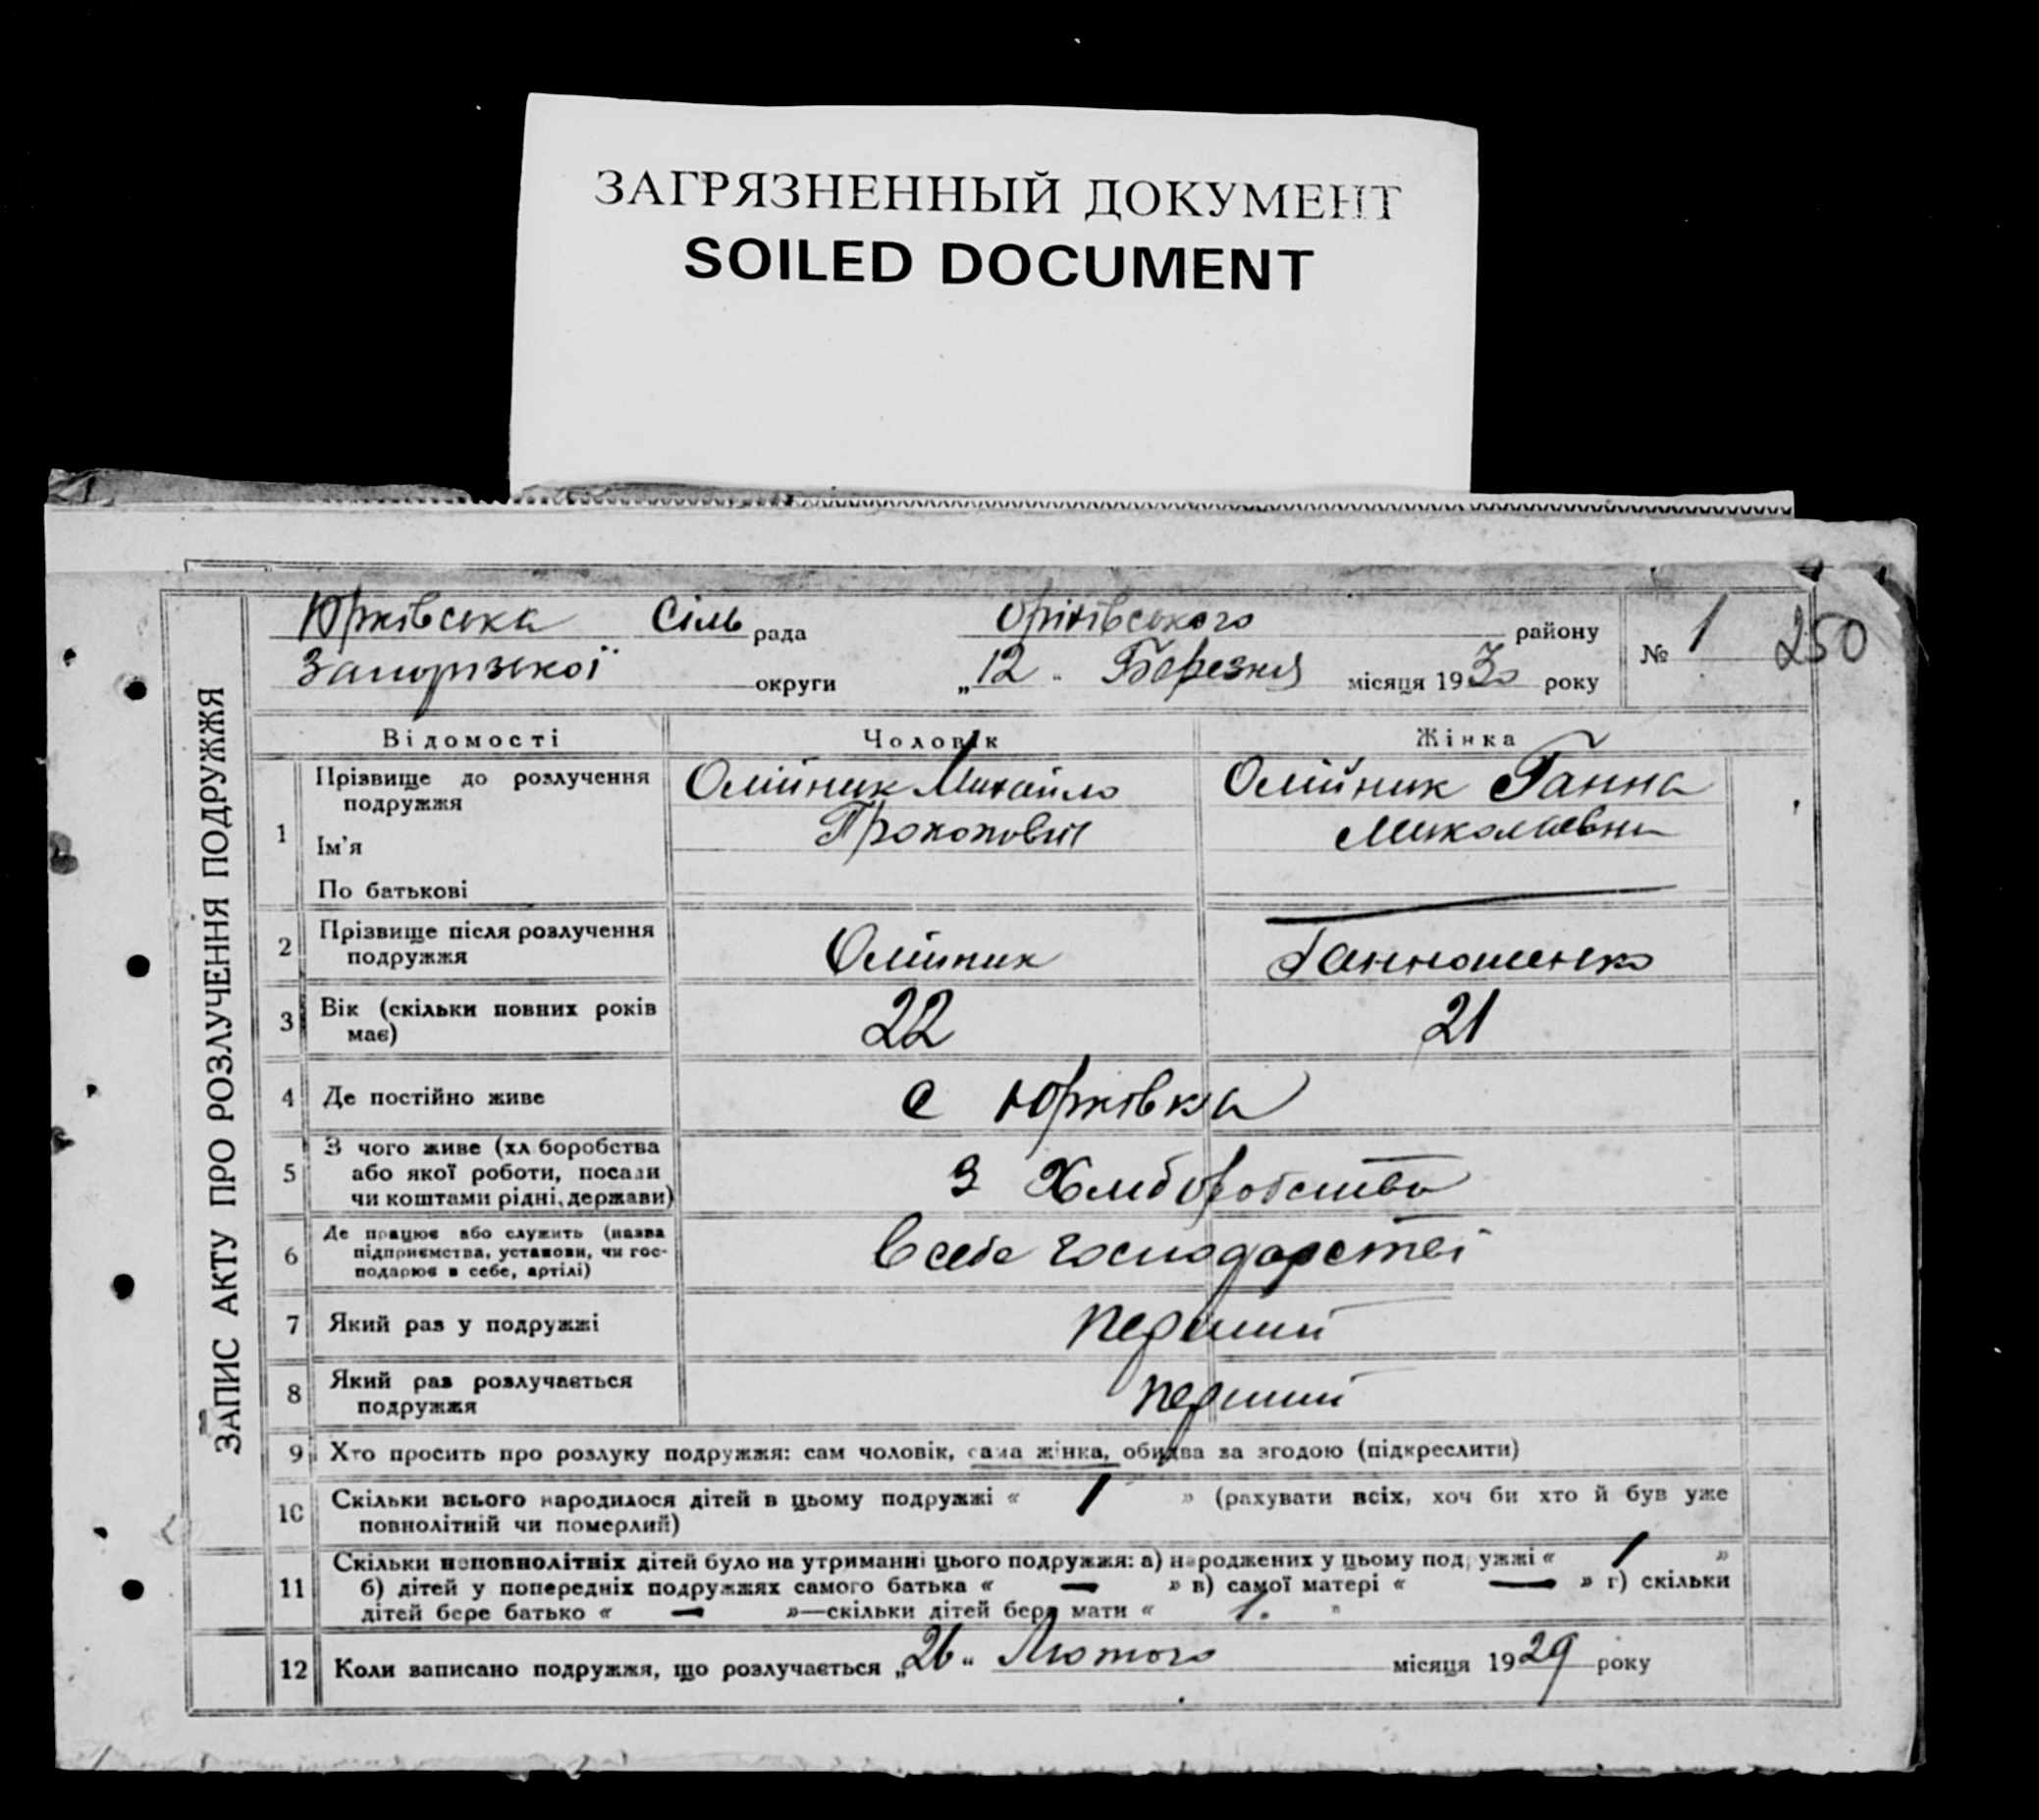 ЗАГРЯЗНЕННЫЙ ДОКУМЕНТ
SOILED DOCUMENT
ЗАПИС АКТУ ПРО РОЗЛУЧЕННЯ ПОДРУЖЖЯ
Юрківська Сіль рада Оріхівського району № 1 250
Запорізької округи „12" Березня місяця 1930 року
Відомості Чоловік Жінка
1 Прізвище до розлучення подружжя Олійник Михайло Олійник Ганна
Ім'я Прокопович Миколаєвна
По батькові
2 Прізвище після розлучення подружжя Олійник
3 Вік (скільки повних років має) 22 21
4 Де постійно живе с Юрківка
5 З чого живе (хліборобства або якої роботи, посади чи коштами рідні, держави) З Хліборобства
6 Де працює або служить (назва підприємства, установи, чи господарює в себе, артілі) В себе господарстві
7 Який раз у подружжі перший
8 Який раз розлучається подружжя перший
9 Хто просить про розлуку подружжя: сам чоловік, сама жінка, обидва за згодою (підкреслити)
10 Скільки всього народилося дітей в цьому подружжі « 1 » (рахувати всіх, хоч би хто й був уже
повнолітній чи померлий)
11 Скільки неповнолітніх дітей було на утриманні цього подружжя: а) народжених у цьому подружжі « 1 »
б) дітей у попередніх подружжях самого батька « — » в) самої матері « — » г) скільки
дітей бере батько « — »—скільки дітей бере мати « 1. »
12 Коли записано подружжя, що розлучається „26" Лютого місяця 1929 року